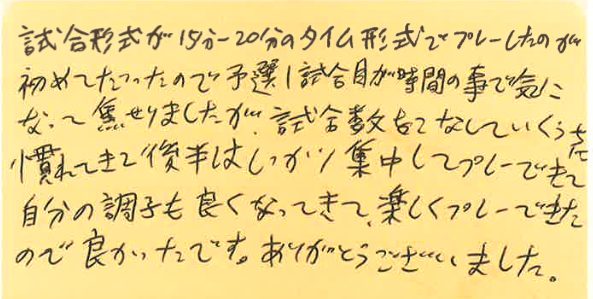 試合形式が15分〜20分のタイム形式でプレーしたのが
初めてだったので予選1試合目が時間の事で気に
なって焦せりましたが、試合数をこなしていくうちに
慣れてきて後半はしっかり集中してプレーできて
自分の調子も良くなってきて、楽しくプレーできた
ので良かったです。ありがとうございました。